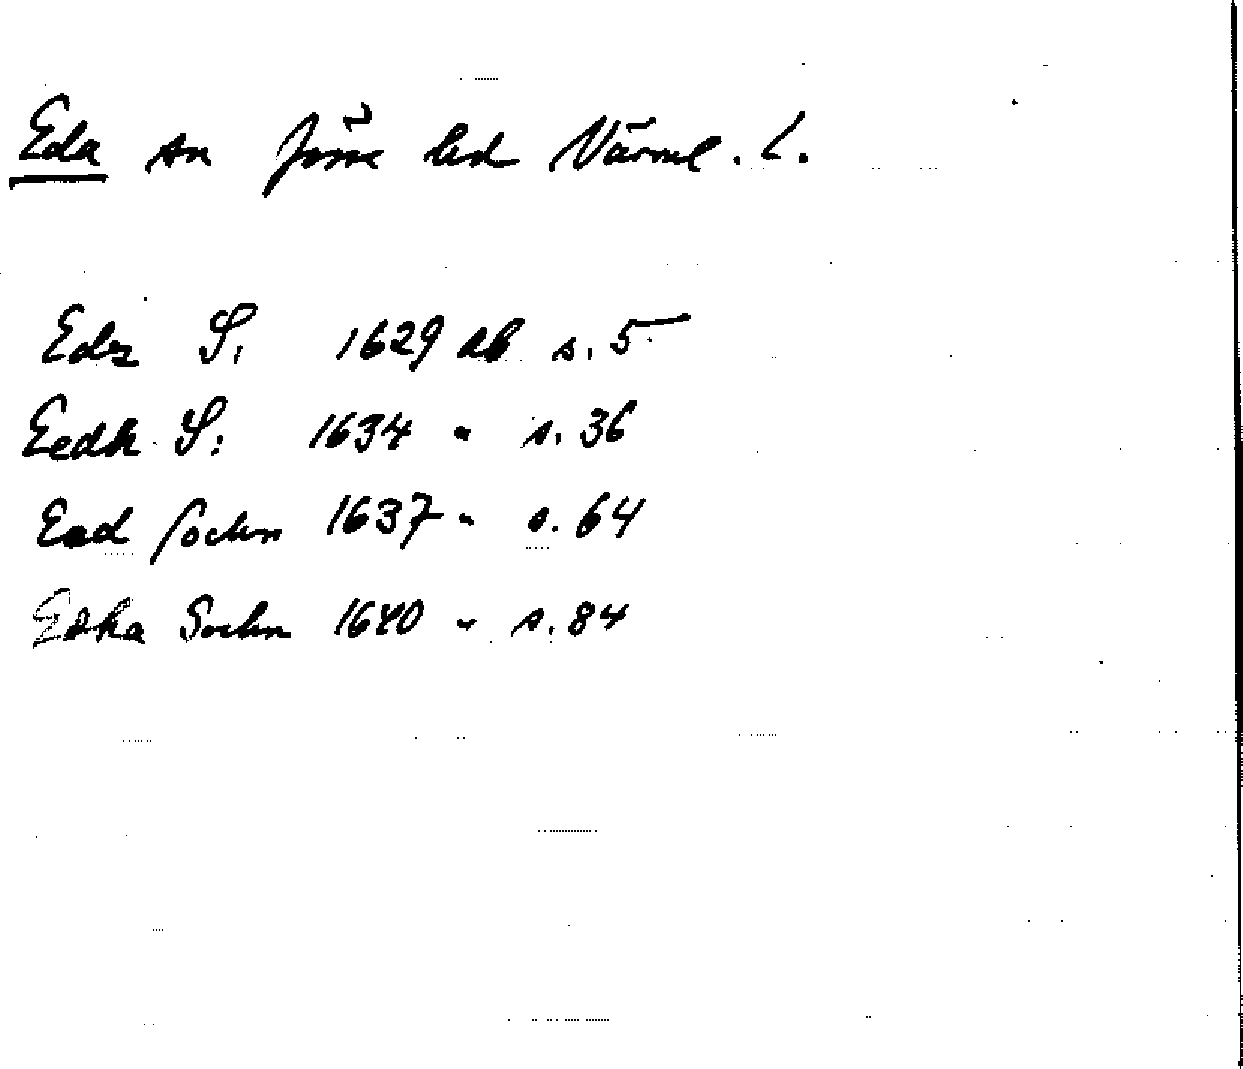 Eda sn Jösse hd Värml. l.
Edz S. 1629 ab s. 5
Eedh S: 1634 " s. 36
Eed sochn 1637 " s. 64
Edha Sochn 1640 " s. 84